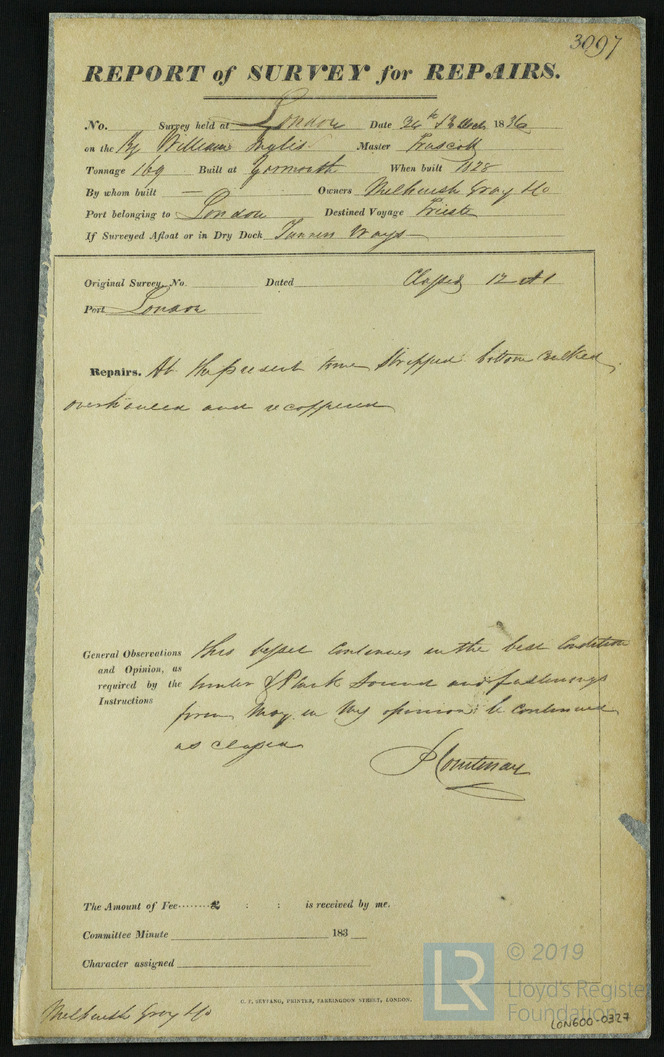 3097
REPORT of SURVEY for REPAIRS.
No. Survey held at London Date 26th Decr 1836
on the Bg William Inglis Master Truscott
Tonnage 169 Built at Yarmouth When built 1828
By whom built — Owners Melhuish Gray & Co
Port belonging to London Destined Voyage Trieste
If Surveyed Afloat or in Dry Dock Ways
Original Survey, No. Dated Classed 12 A1
Port London
Repairs. At the present time stripped bottom caulked
overhauled and recoppered
General Observations and Opinion, as required by the Instructions
This vessel continues in the best condition
timber & Plank Sound and fastenings
firm May in my opinion be continued
as classed
J Courtenay
The Amount of Fee ........ £ : : is received by me,
Committee Minute 183
Character assigned
C. F. SEYFANG, PRINTER, FARRINGDON STREET, LONDON.
Melhuish Gray & Co
LR © 2019
Lloyd's Register
Foundation
LON600-0327